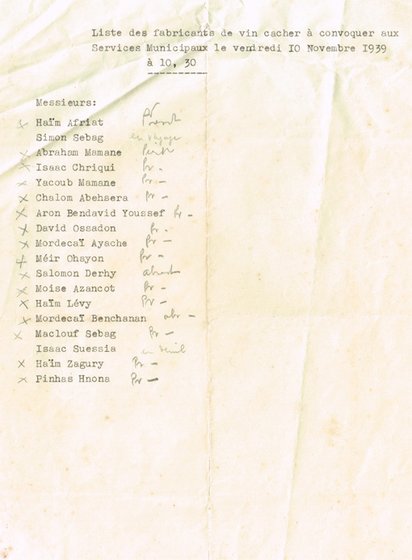 Liste des fabricants de vin cacher à convoquer aux
Services Municipaux le vendredi 10 Novembre 1939
à 10, 30
Messieurs:
x Haïm Afriat
Simon Sebag en voyage
x Abraham Mamane
x Isaac Chriqui Pr -
x Yacoub Mamane Pr -
x Chalom Abehsera Pr -
x Aron Bendavid Youssef Pr -
x David Ossadon Pr -
x Mordecaï Ayache Pr -
x Méir Ohayon Pr -
x Salomon Derhy absent
x Moise Azancot Pr -
x Haïm Lévy Pr -
x Mordecaï Benchanan abs -
x Maclouf Sebag Pr -
Isaac Suessia en deuil
x Haïm Zagury Pr -
x Pinhas Hnona Pr -